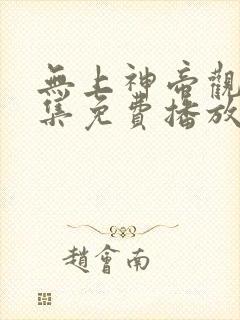 無上神帝觀
集免費播放
趙會南